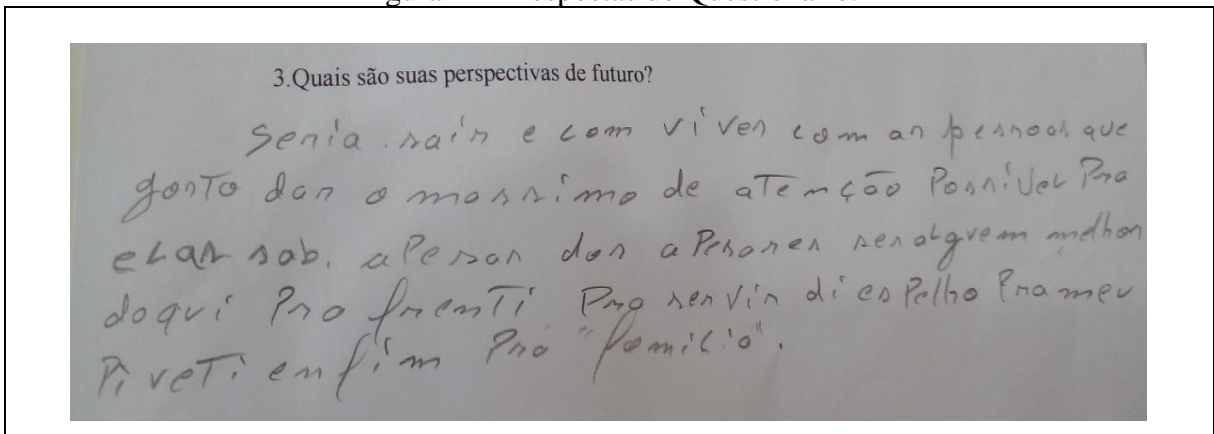 3.Quais são suas perspectivas de futuro?
Seria sair e com viver com as pessoas que
gosto dar o massimo de atemção Possivel Pra
elas sab. aPesar dos aPesares ser alguem melhor
doqui Pro frenti Pra servir di esPelho Pra meu
Piveti enfim Pra "familia".